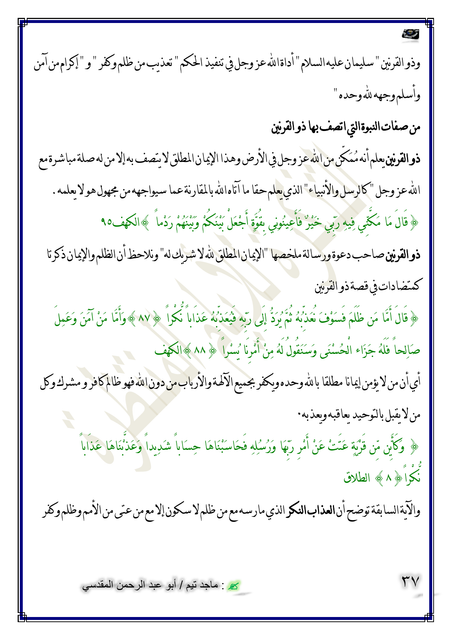 وذو القرنين " سليمان عليه السلام " أداة الله عز وجل في تنفيذ الحكم " تعذيب من ظلم وكفر " و " إكرام من آمن
وأسلم وجهه لله وحده "
من صفات النبوة التي اتصف بها ذو القرنين
ذو القرنين يعلم أنه مُمَكّن من الله عز وجل في الأرض وهذا الإيمان المطلق لا يتصف به إلا من له صلة مباشرة مع
الله عز وجل "كالرسل والأنبياء" الذي يعلم حقا ما آتاه الله بالمقارنة عما سيواجهه من مجهول هو لا يعلمه .
﴿ قَالَ مَا مَكَّنِّي فِيهِ رَبِّي خَيْرٌ فَأَعِينُونِي بِقُوَّةٍ أَجْعَلْ بَيْنَكُمْ وَبَيْنَهُمْ رَدْماً ﴾الكهف٩٥
ذو القرنين صاحب دعوة ورسالة ملخصها "الإيمان المطلق لله لا شريك له" ونلاحظ أن الظلم والإيمان ذكرتا
كمتضادات في قصة ذو القرنين
﴿ قَالَ أَمَّا مَن ظَلَمَ فَسَوْفَ نُعَذِّبُهُ ثُمَّ يُرَدُّ إِلَى رَبِّهِ فَيُعَذِّبُهُ عَذَاباً نُّكْراً ﴿٨٧﴾ وَأَمَّا مَنْ آمَنَ وَعَمِلَ
صَالِحاً فَلَهُ جَزَاء الْحُسْنَى وَسَنَقُولُ لَهُ مِنْ أَمْرِنَا يُسْراً ﴿٨٨﴾ الكهف
أي أن من لا يؤمن إيمانا مطلقا بالله وحده ويكفر بجميع الآلهة والأرباب من دون الله فهو ظالم كافر و مشرك وكل
من لا يقبل بالتوحيد يعاقبه ويعذبه .
﴿ وَكَأَيِّن مِّن قَرْيَةٍ عَتَتْ عَنْ أَمْرِ رَبِّهَا وَرُسُلِهِ فَحَاسَبْنَاهَا حِسَاباً شَدِيداً وَعَذَّبْنَاهَا عَذَاباً
نُّكْراً ﴿٨﴾ الطلاق
والآية السابقة توضح أن العذاب النكر الذي مارسه مع من ظلم لا سكون إلا مع من عتى من الأمم وظلم وكفر
٣٧ : ماجد تيم / أبو عبد الرحمن المقدسي